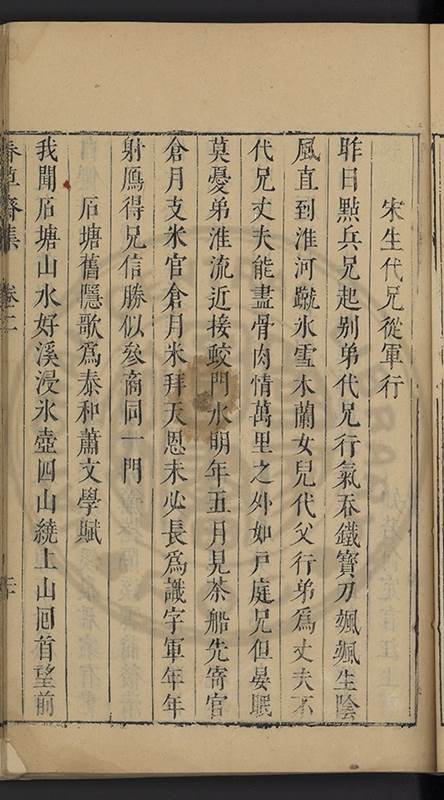 宋生代兄從軍行
昨日㸃兵兄起别弟代兄行氣吞鐵寳刀颯颯生陰
風直到淮河蹴氷雪木蘭女兒代父行弟爲丈夫不
代兄丈夫能盡骨肉情萬里之外如戸庭兄但晏眠
莫憂弟淮流近接蛟門水明年五月見茶船先寄官
倉月支米官倉月米拜天恩未必長爲識字軍年年
射鴈得兄信勝似參商同一門
石塘舊隱歌爲泰和蕭文學賦
我聞石塘山水好溪浸氷壺四山繞上山回首望前
春草齋集 卷二